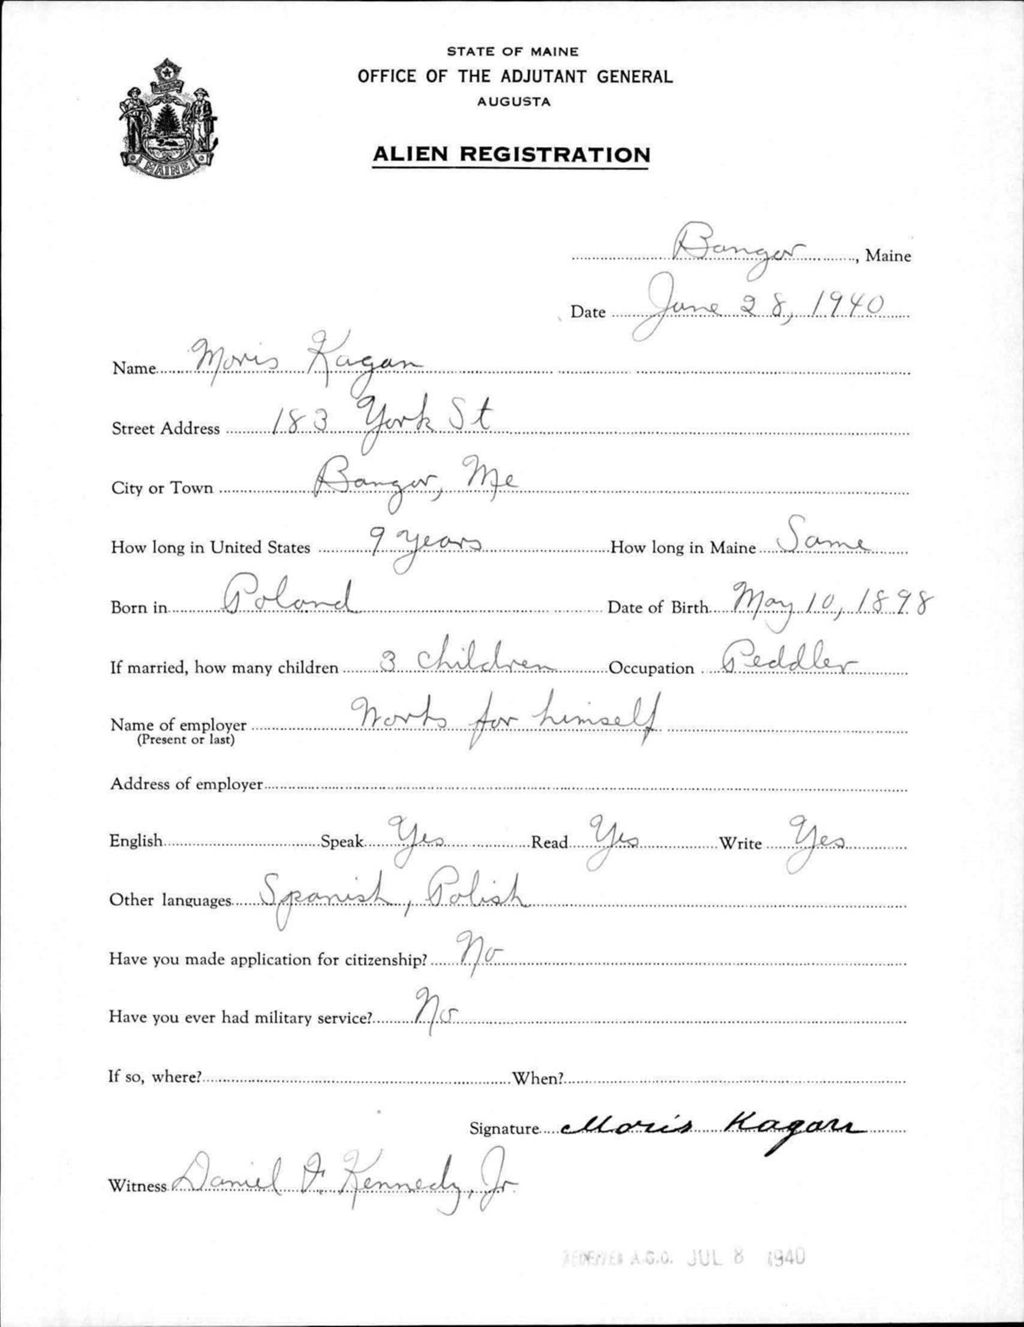 STATE OF MAINE
OFFICE OF THE ADJUTANT GENERAL
AUGUSTA
ALIEN REGISTRATION
MAINE
Bangor, Maine
Date June 28, 1940
Name Moris Kagan
Street Address 183 York St
City or Town Bangor, Me
How long in United States 9 years How long in Maine Same
Born in Poland Date of Birth May 10, 1898
If married, how many children 3 children Occupation Peddler
Name of employer Works for himself
(Present or last)
Address of employer
English Speak Yes Read Yes Write Yes
Other languages Spanish, Polish
Have you made application for citizenship? No
Have you ever had military service? No
If so, where? When?
Signature Moris Kagan
Witness Daniel F. Kennedy, Jr.
RECEIVED A.G.O. JUL 8 1940